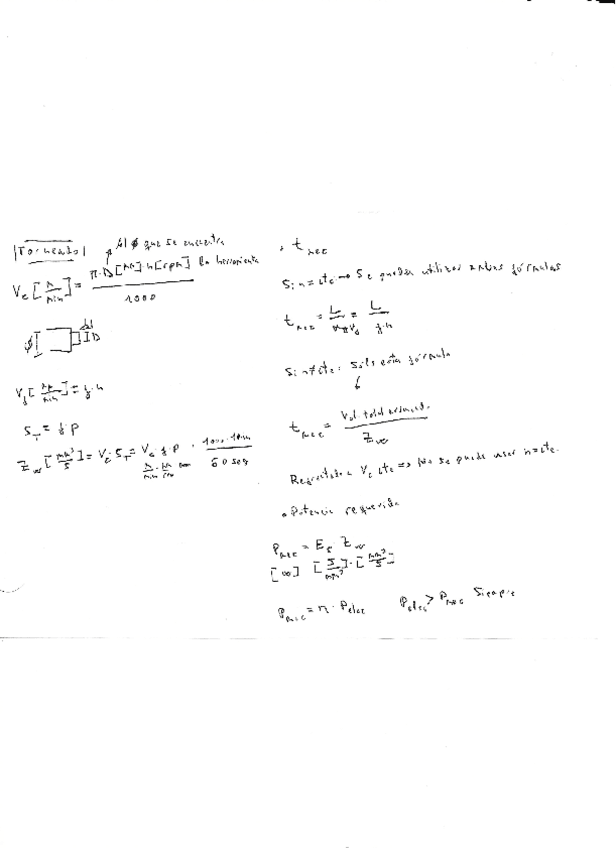 Torneado
Al ø que se encuentra
la herramienta
Vc [m/min] = π·D[mm]·n[rpm] / 1000
ø D
Vf [mm/min] = f·n
ST = f·p
Zw [mm³/s] = Vc·ST = Vc·f·p · 1000·1min / 60 seg
m/min · mm/rev · mm
· tmec
Si n = cte → Se pueden utilizar ambas fórmulas
tmec = L/Vf = L/f·n
Si n≠cte: Solo esta fórmula
tmec = Vol. total / Zw
Refrentado a Vc cte => No se puede usar n=cte.
• Potencia requerida
Pmec = Es · Zw
[w] [J/mm³]·[mm³/s]
Pmec = η · Pelec Pelec > Pmec Siempre